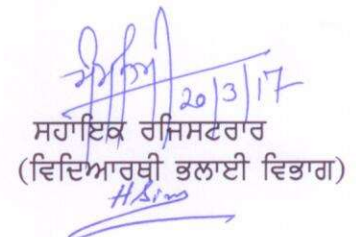 20/3/17
ਸਹਾਇਕ ਰਜਿਸਟਰਾਰ
(ਵਿਦਿਆਰਥੀ ਭਲਾਈ ਵਿਭਾਗ)